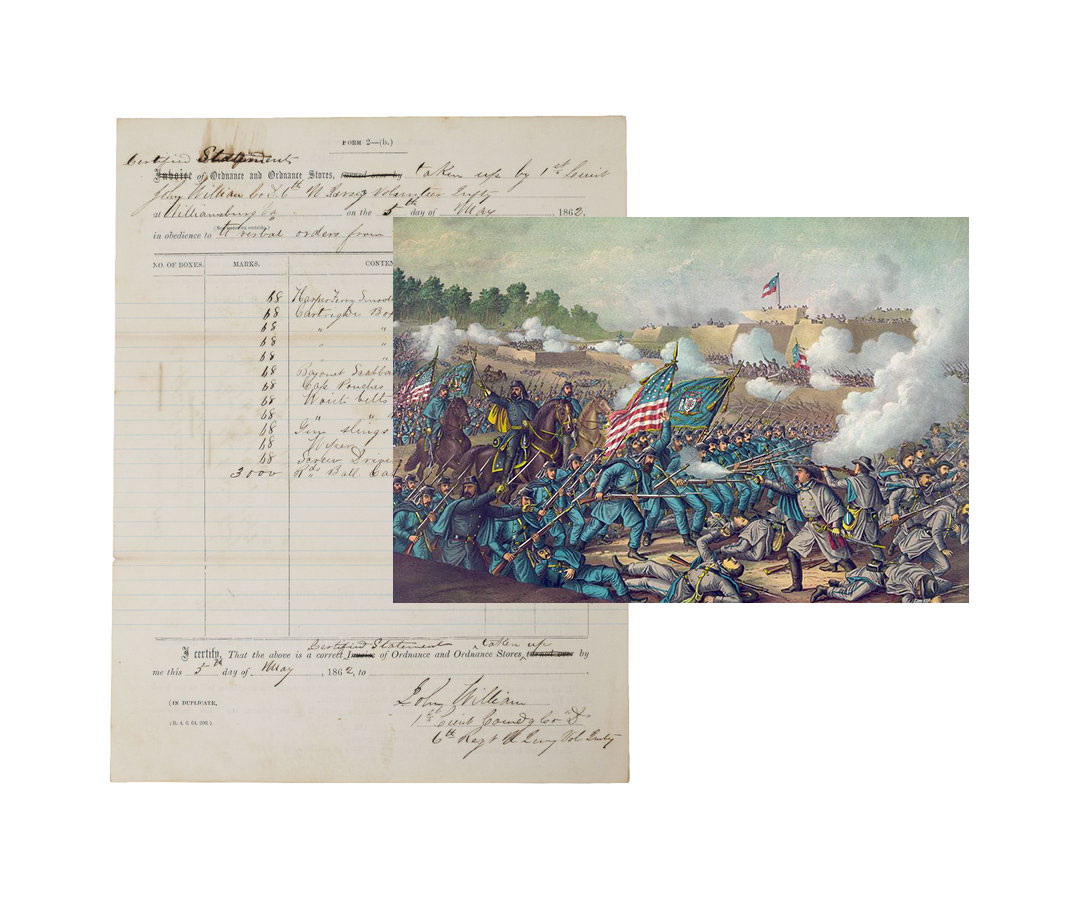 FORM 2—(b.)
Certified Statement
Invoice of Ordnance and Ordnance Stores, turned over by taken up by 1st Lieut
John William Co D. 6th N Jersey Volunteer Infty
at Williamsburg Va on the 5th day of May, 1862,
in obedience to verbal orders from
NO. OF BOXES. MARKS. CONTEN
68
68 Cartridge Bo
68 " "
68 " "
68 " "
68 Bayonet Scabba
68 Cap Pouches
68 Waist belts
68 " "
68 Gun Slings
68 Wipers
68 Screw Driver
3000 Ball Ca
Certified Statement taken up
I certify, That the above is a correct Invoice of Ordnance and Ordnance Stores, turned over by
me this 5th day of May, 1862, to
(IN DUPLICATE,
John William
1st Lieut Comdg Co "D"
6th Regt N Jersey Vol Infty